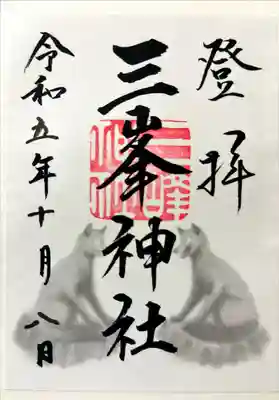 登拝
三峯神社
令和五年十月八日